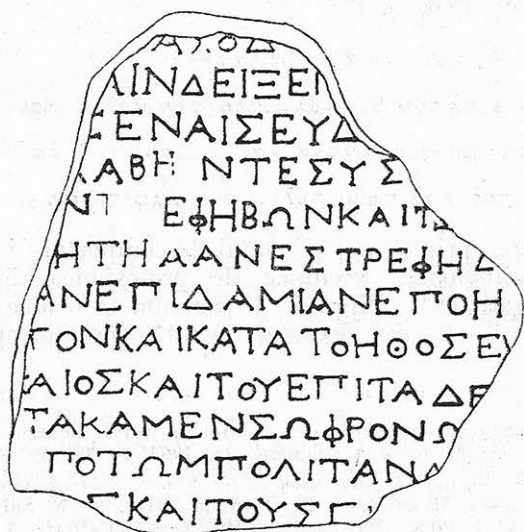 ΑΛΟΔ
ΙΝΔΕΙΞΕΙ
ΕΝΑΙΣΕΥΔ
ΑΒΗ ΝΤΕΣΥΣ
ΕΦΗΒΩΝΚΑΙΤ
ΗΤΗΑΑΝΕΣΤΡΕΦΗΔ
ΑΝΕΠΙΔΑΜΙΑΝΕΠΟΗ
ΓΟΝΚΑΙΚΑΤΑΤΟΗΘΟΣΕΥ
ΑΙΟΣΚΑΙΤΟΥΕΠΙΤΑΔΕ
ΤΑΚΑΜΕΝΣΩΦΡΟΝΩ
ΠΟΤΩΜΠΟΛΙΤΑΝ
ΚΑΙΤΟΥΣ